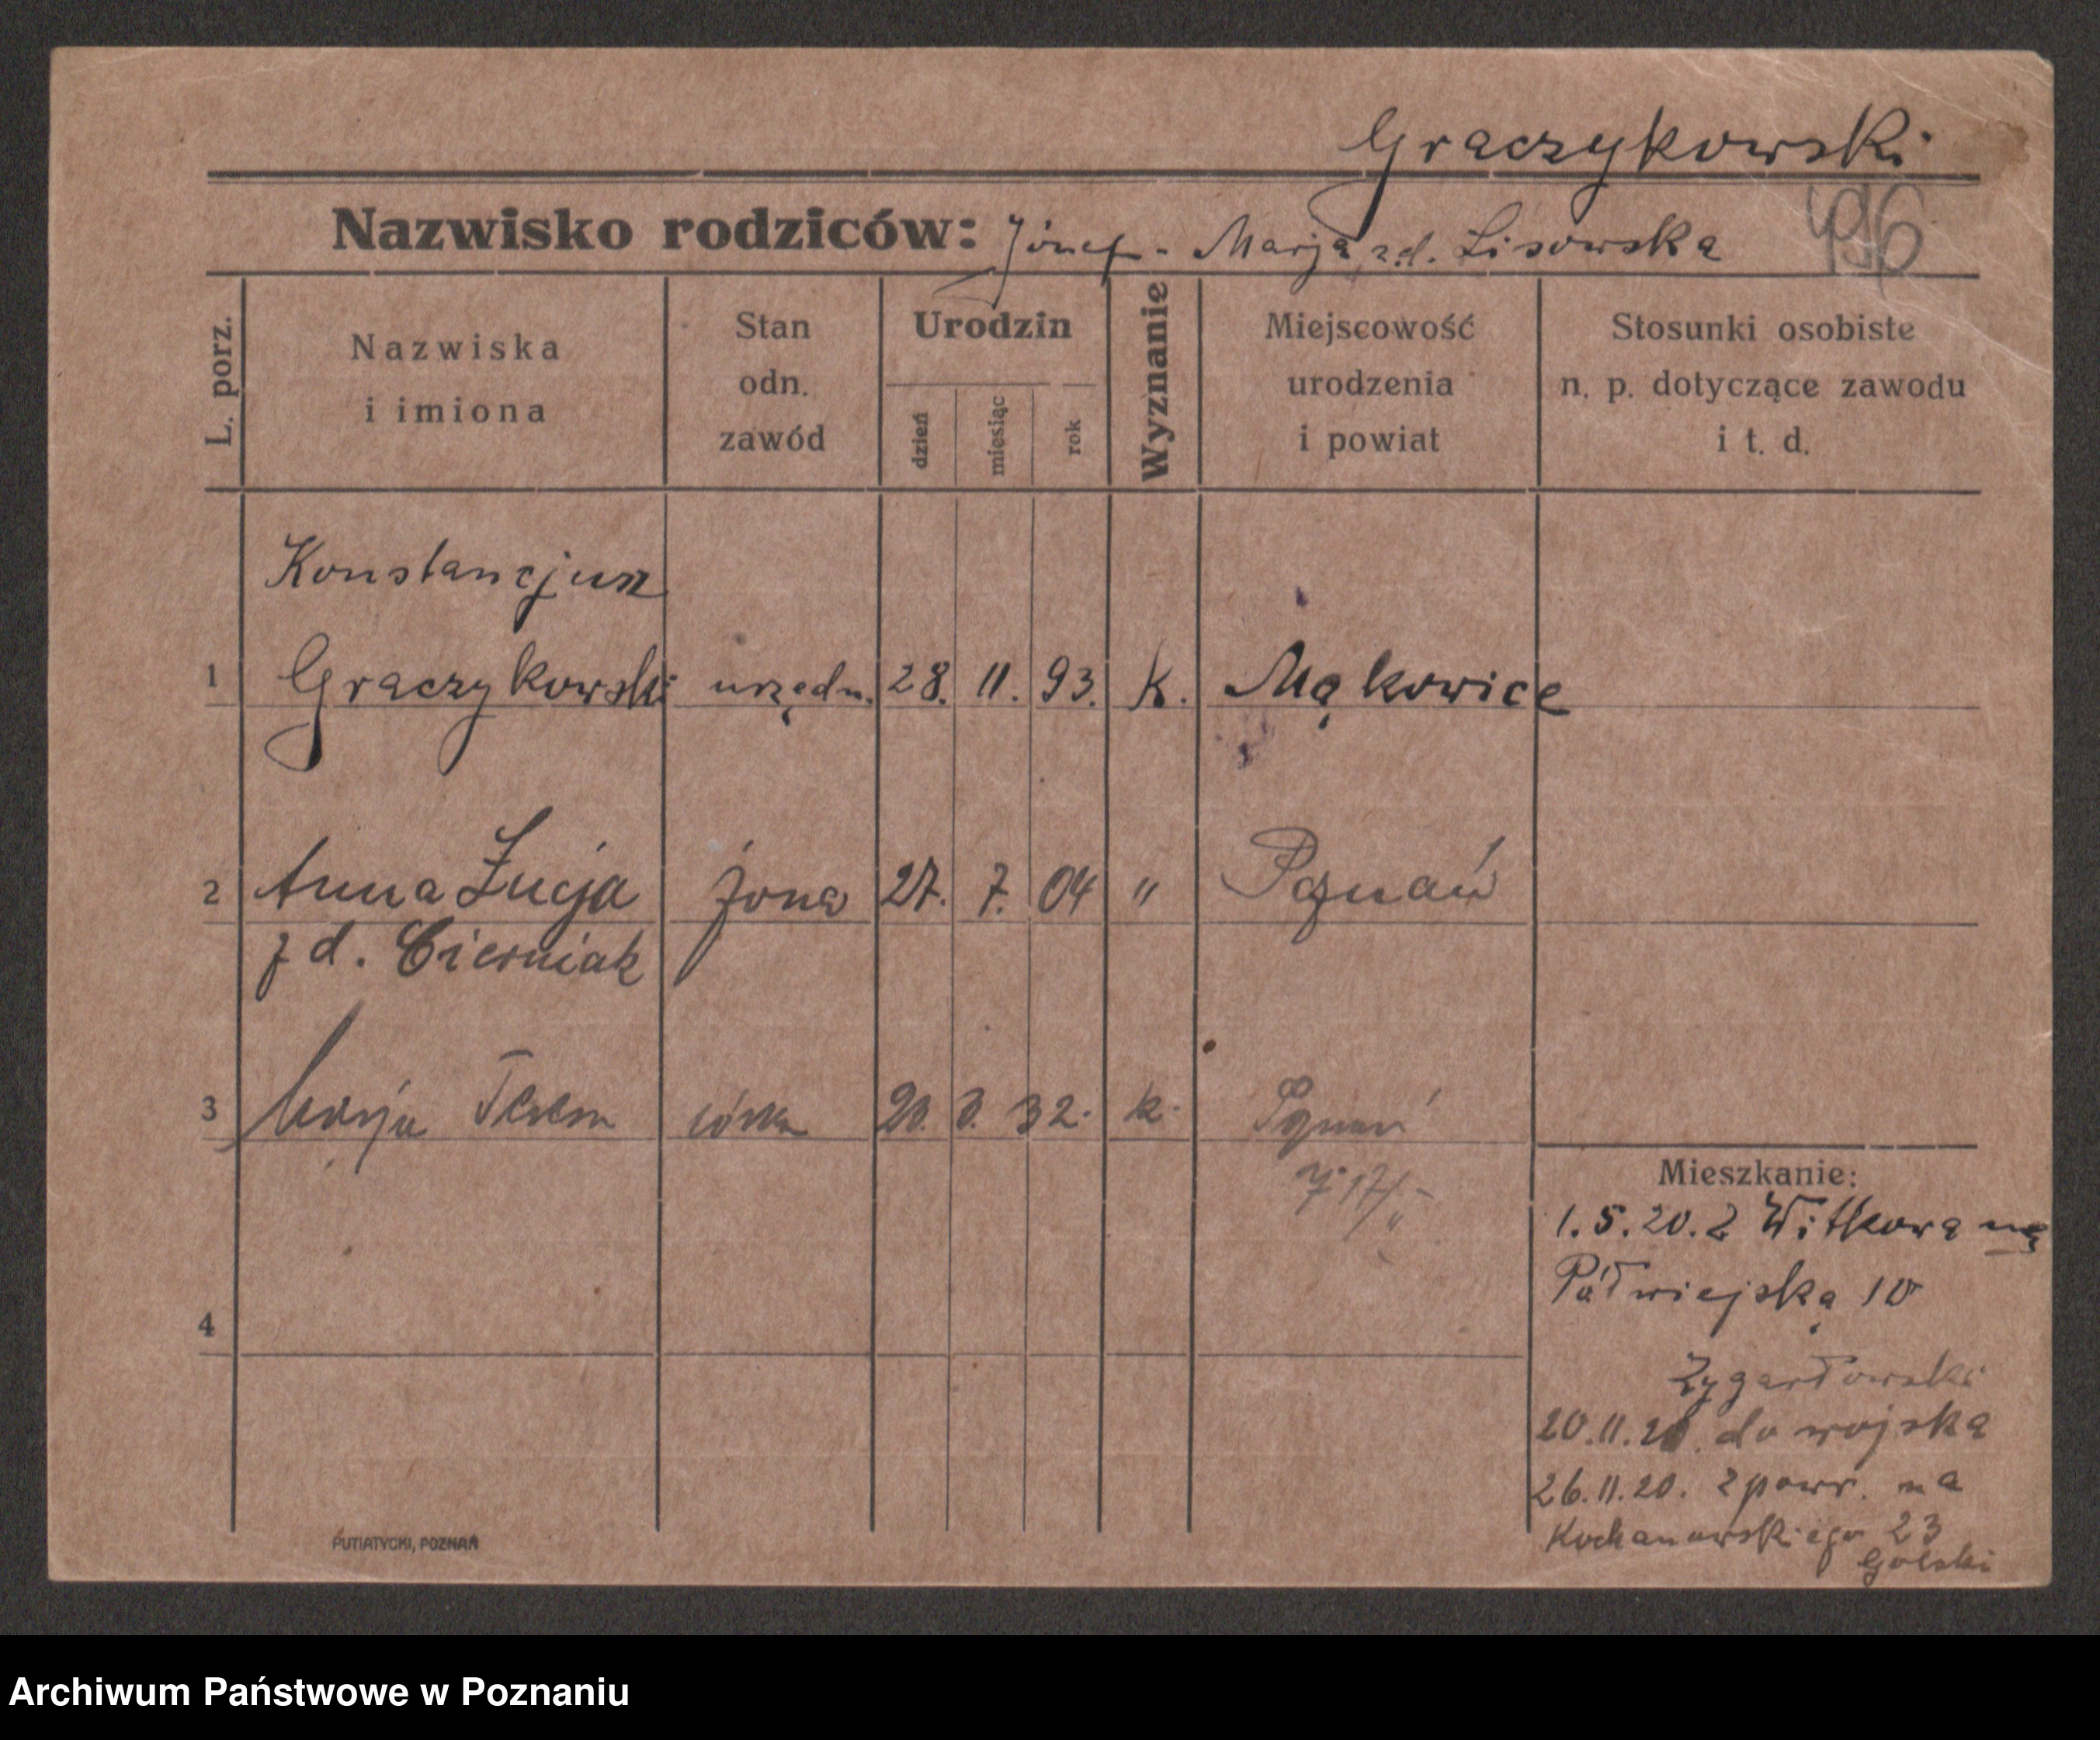 Graczykowski
496
Nazwisko rodziców: Józef - Marja z d. Lisowska
L. porz.
Nazwiska
i imiona
Stan
odn.
zawód
Urodzin
dzień
miesiąc
rok
Wyznanie
Miejscowość
urodzenia
i powiat
Stosunki osobiste
n. p. dotyczące zawodu
i t. d.
Konstancjusz
1 Graczykowski urzędn. 28. 11. 93. K. Mąkowice
2 Anna Łucja żona 27. 7. 04 " Poznań
z d. Cierniak
3 Marja Teresa córka 20. 3. 32. k. Poznań
4
Mieszkanie:
1.5.20. z Witkowa na
Półwiejską 10
Zygarłowski
20.11.20. do wojska
26.11.20. z powr. na
Kochanowskiego 23
Golski
PUTIATYCKI, POZNAŃ
Archiwum Państwowe w Poznaniu